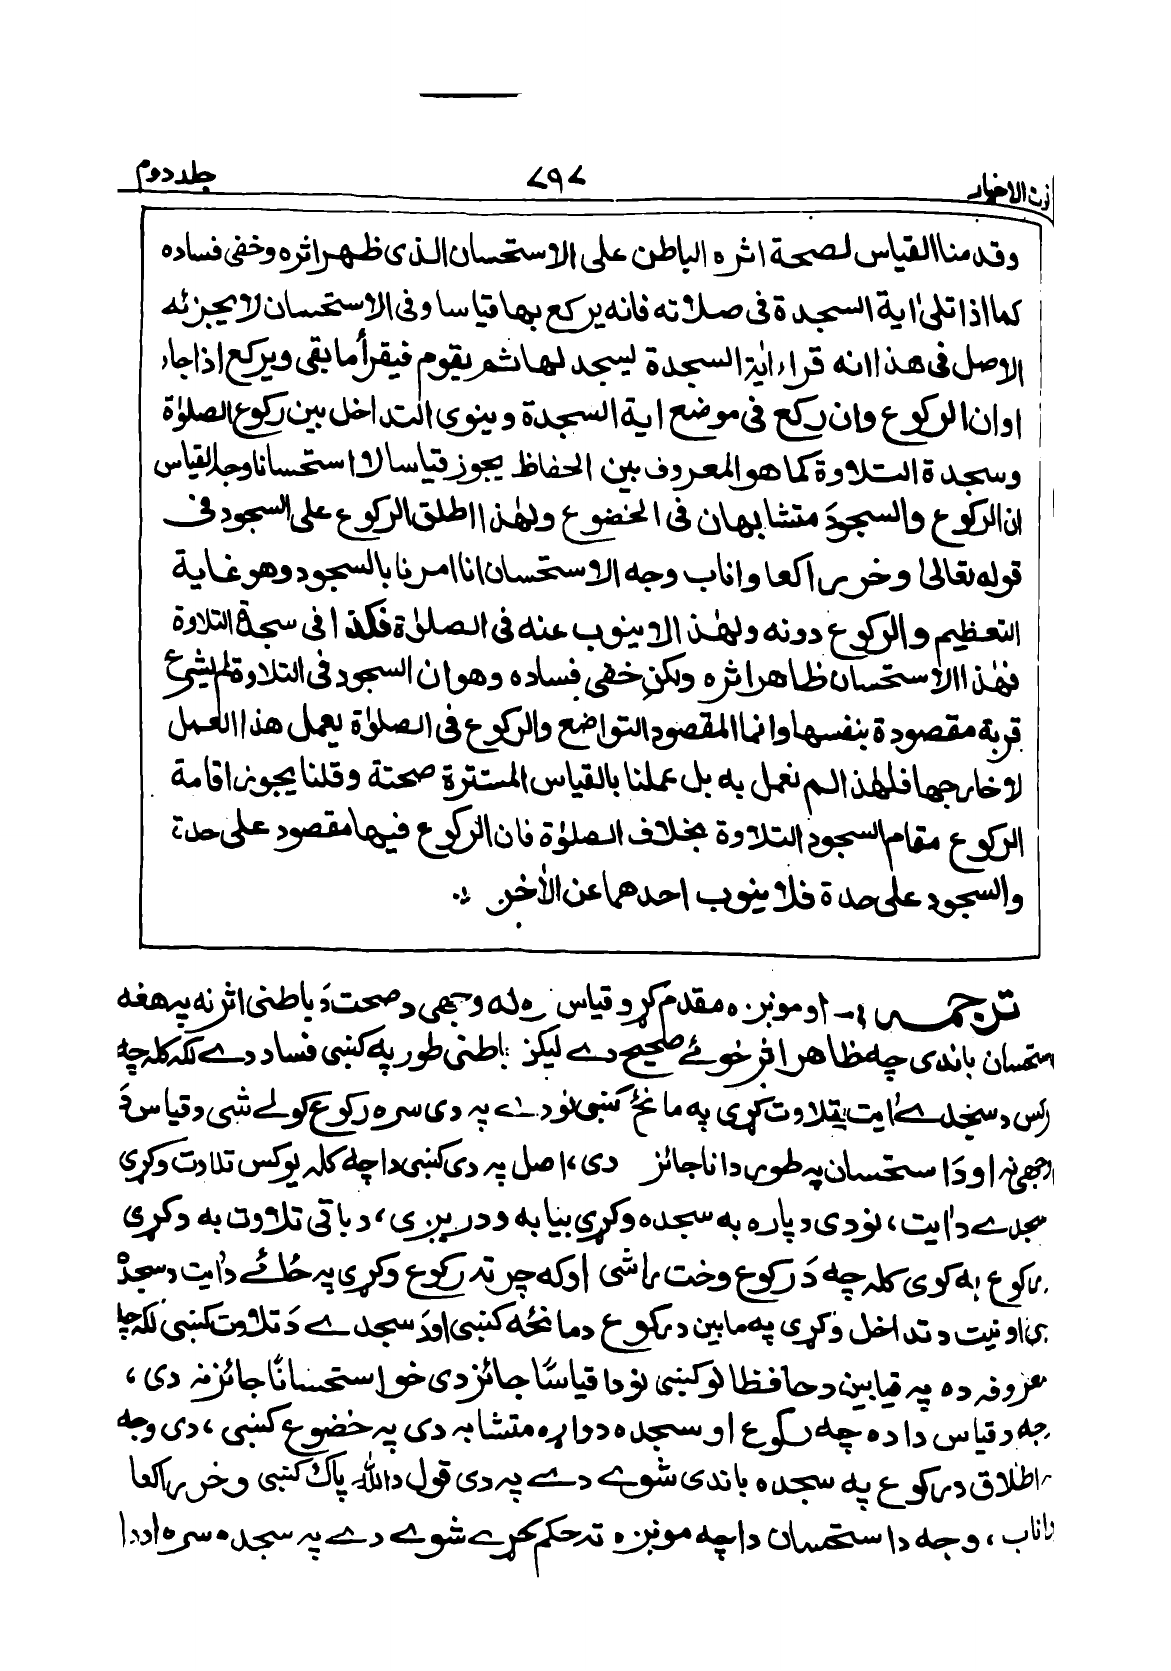 جلد دوم ٧٩٧ الاخيار
وقدمنا القياس لصحة اثره الباطن على الاستحسان الذى ظهر اثره وخفى فساده
كما اذا تلى اٰية السجدة فى صلاته فانه يركع بها قياسا وفى الاستحسان لا يجزئه
الاصل فى هذا انه قراء اٰية السجدة يسجد لها ثم يقوم فيقرأ ما بقى ويركع اذا جاء
اوان الركوع وان ركع فى موضع اية السجدة وينوى التداخل بين ركوع الصلوٰة
وسجدة التلاوة كما هو المعروف بين الحفاظ يجوز قياسا لا استحسانا وجه القياس
ان الركوع والسجود متشابهان فى الخضوع ولهٰذا اطلق الركوع على السجود فى
قوله تعالىٰ وخر راكعا واناب وجه الاستحسان انا امرنا بالسجود وهو غاية
التعظيم والركوع دونه ولهٰذا لا ينوب عنه فى الصلوٰة فكذا فى سجدة التلاوة
فهٰذا الاستحسان ظاهر اثره ولكن خفى فساده وهو ان السجود فى التلاوة لم يشرع
قربة مقصودة بنفسها وانما المقصود التواضع والركوع فى الصلوٰة يعمل هذا العمل
لا خارجها فلهٰذا لم نعمل به بل عملنا بالقياس المستترة صحته وقلنا يجوز اقامة
الركوع مقام السجود التلاوة بخلاف الصلوٰة فان الركوع فيها مقصود على حدة
والسجود على حدة فلا ينوب احدهما عن الاٰخر
ترجمہ :- او مونږه مقدم کړو قياس له وجهی د صحت دَ باطنی اثر نه په هغه
استحسان باندی چه ظاهر اثر خوئے صحیح دے لیکن باطنی طور په کښی فساد دے لکه کله چه
د سجدے اٰیت تلاوت کړی په مانځهٔ کښی نو دے په دی سره رکوع کولے شی د قیاس دَ
وجهی نه او دَ استحسان په طور دا ناجائز دی، اصل په دی کښی دا چه کله یو کس تلاوت وکړی
سجدے د اٰیت، نو دی دپاره به سجده وکړی بیا به ودریږی، د باقی تلاوت به وکړی
رکوع به کوی کله چه دَ رکوع وخت راشی او که چرته رکوع وکړی په ځائے د اٰیت د سجدے
او نیت د تداخل وکړی په مابین د رکوع د مانځه کښی او دَ سجدے دَ تلاوت کښی لکه چا
معروفه ده په مابین د حافظانو کښی نو دا قیاسًا جائز دی خو استحسانًا جائز نه دی،
وجه د قیاس دا ده چه رکوع او سجده دواړه متشابه دی په خضوع کښی، دی وجه
اطلاق د رکوع په سجده باندی شوے دے په دی قول دالله پاک کښی وخر راکعا
واناب، وجه د استحسان دا چه مونږه ته حکم کړے شوے دے په سجده سره او دا